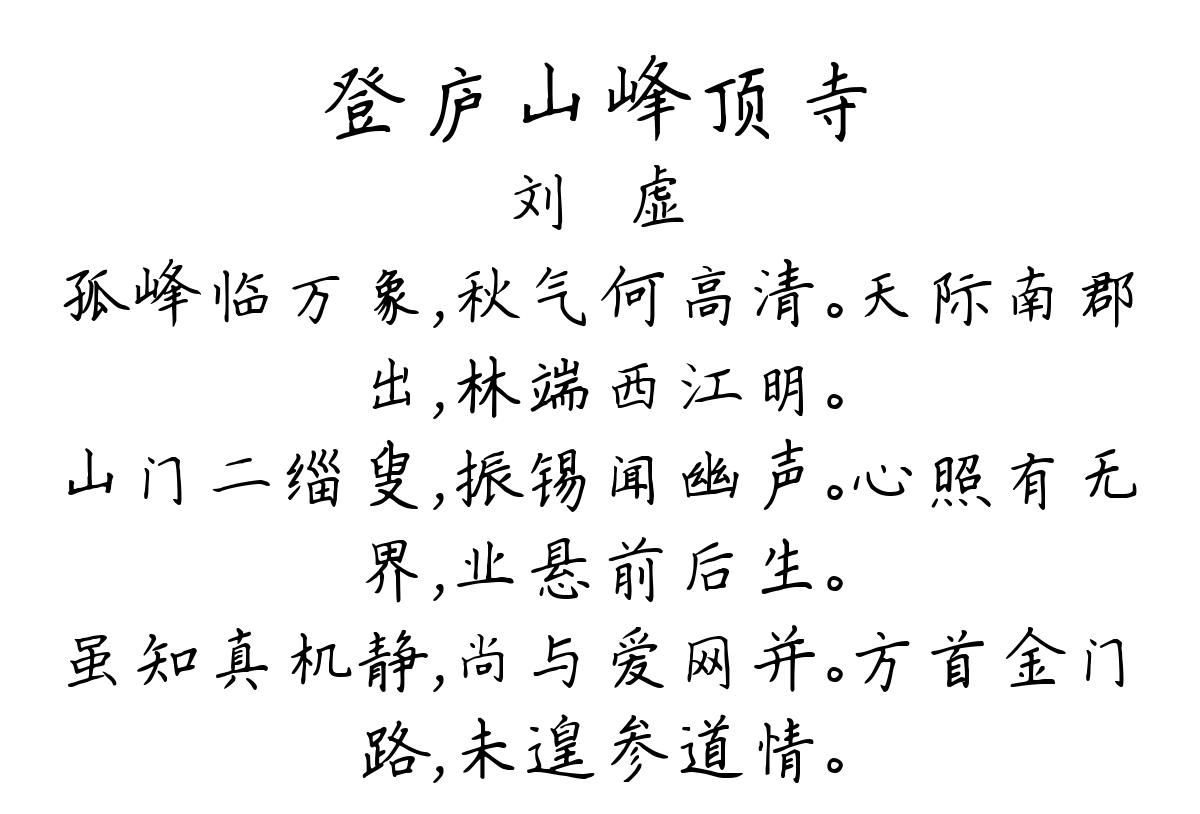 登庐山峰顶寺
刘 虚
孤峰临万象,秋气何高清。天际南郡
出,林端西江明。
山门二缁叟,振锡闻幽声。心照有无
界,业悬前后生。
虽知真机静,尚与爱网并。方首金门
路,未遑参道情。